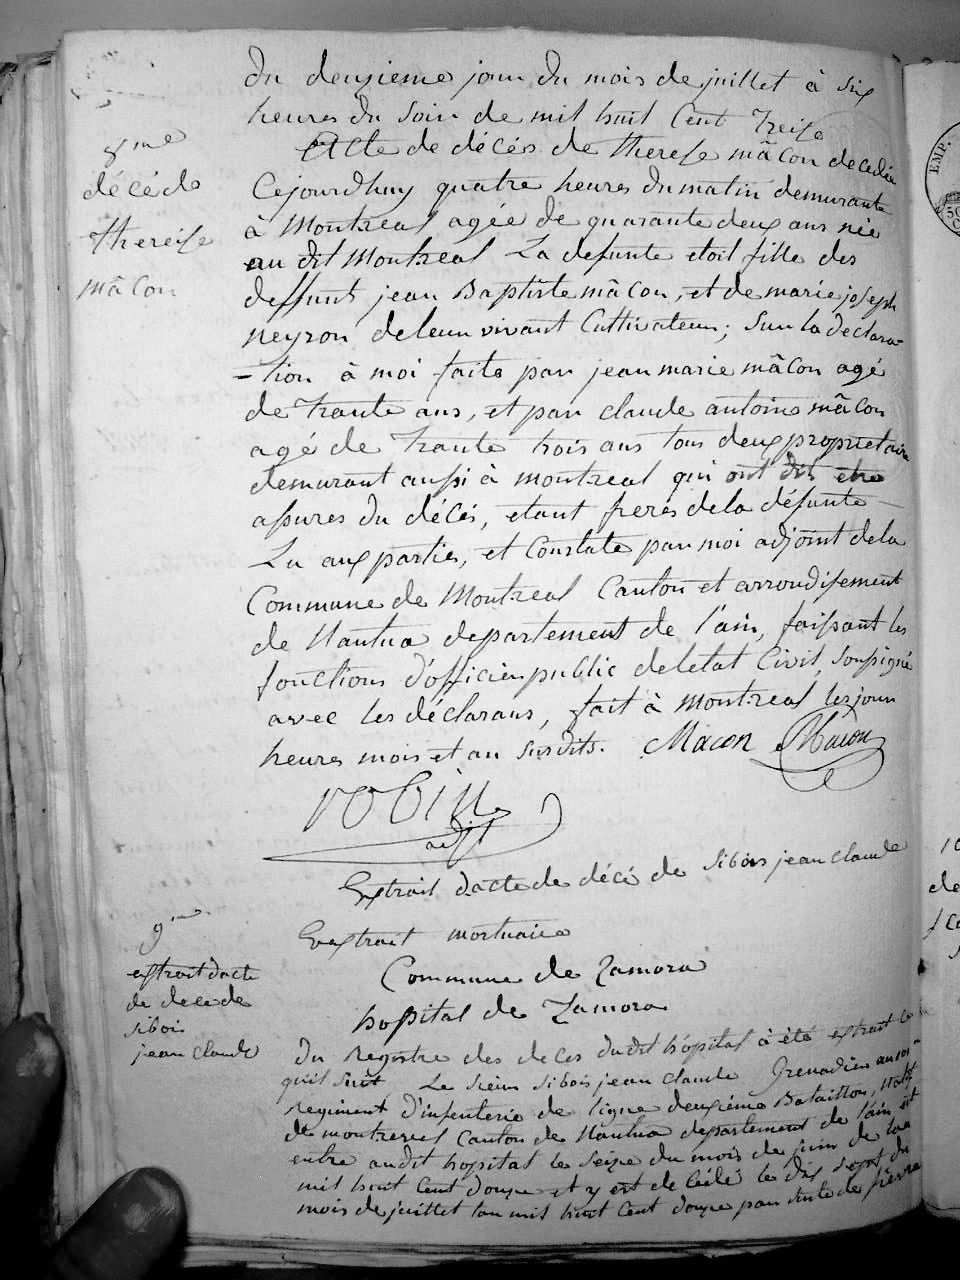 du deuzieme jour du mois de juillet à six
heures du soir de mil huit Cent treise
8me
décé de
thereise
mâcon
Acte de décés de therese mâcon decedée
Cejourdhuy quatre heures du matin demurante
à Montreal agée de quarante deux ans née
au dit Montreal La defunte etoit fille des
deffunt jean Baptiste mâcon, et de marie joseph
neyron de leur vivant Cultivateur; Sur la declara-
-tion à moi faite par jean marie mâcon agé
de trante ans, et par claude antoine mâcon
agé de trante trois ans tous deux propriétaire
demurant aussi à montreal qui ont dit etre
assures du décés, etant freres de la défunte
Lu aux parties, et Constate par moi adjoint de la
Commune de Montreal Canton et arrondisement
de Nantua departement de l'ain, faissant les
fonctions d'officier public de letat Civil, soussigné
avec les déclarans, fait à montreal les jour
heures mois et an susdits. Macon Macon
robin
adjt
Extrait dacte de décé de sibois jean claude
9me
extrait dacte
de decede
sibois
jean claude
Extrait mortuaire
Commune de Zamora
hospital de Zamora
Du Registre des deces dudit hopital à été extrait ce
quil suit Le sieur sibois jean claude Grenadier au
Regiment d'infenterie de ligne deuxiéme Bataillon, natif
de montreal Canton de Nantua departement de l'ain est
entre audit hopital le seize du mois de juin de lan
mil huit Cent douze et y est decédé le dix sept du
mois de juillet lan mil huit Cent douze par suite de fièvre
EMP.